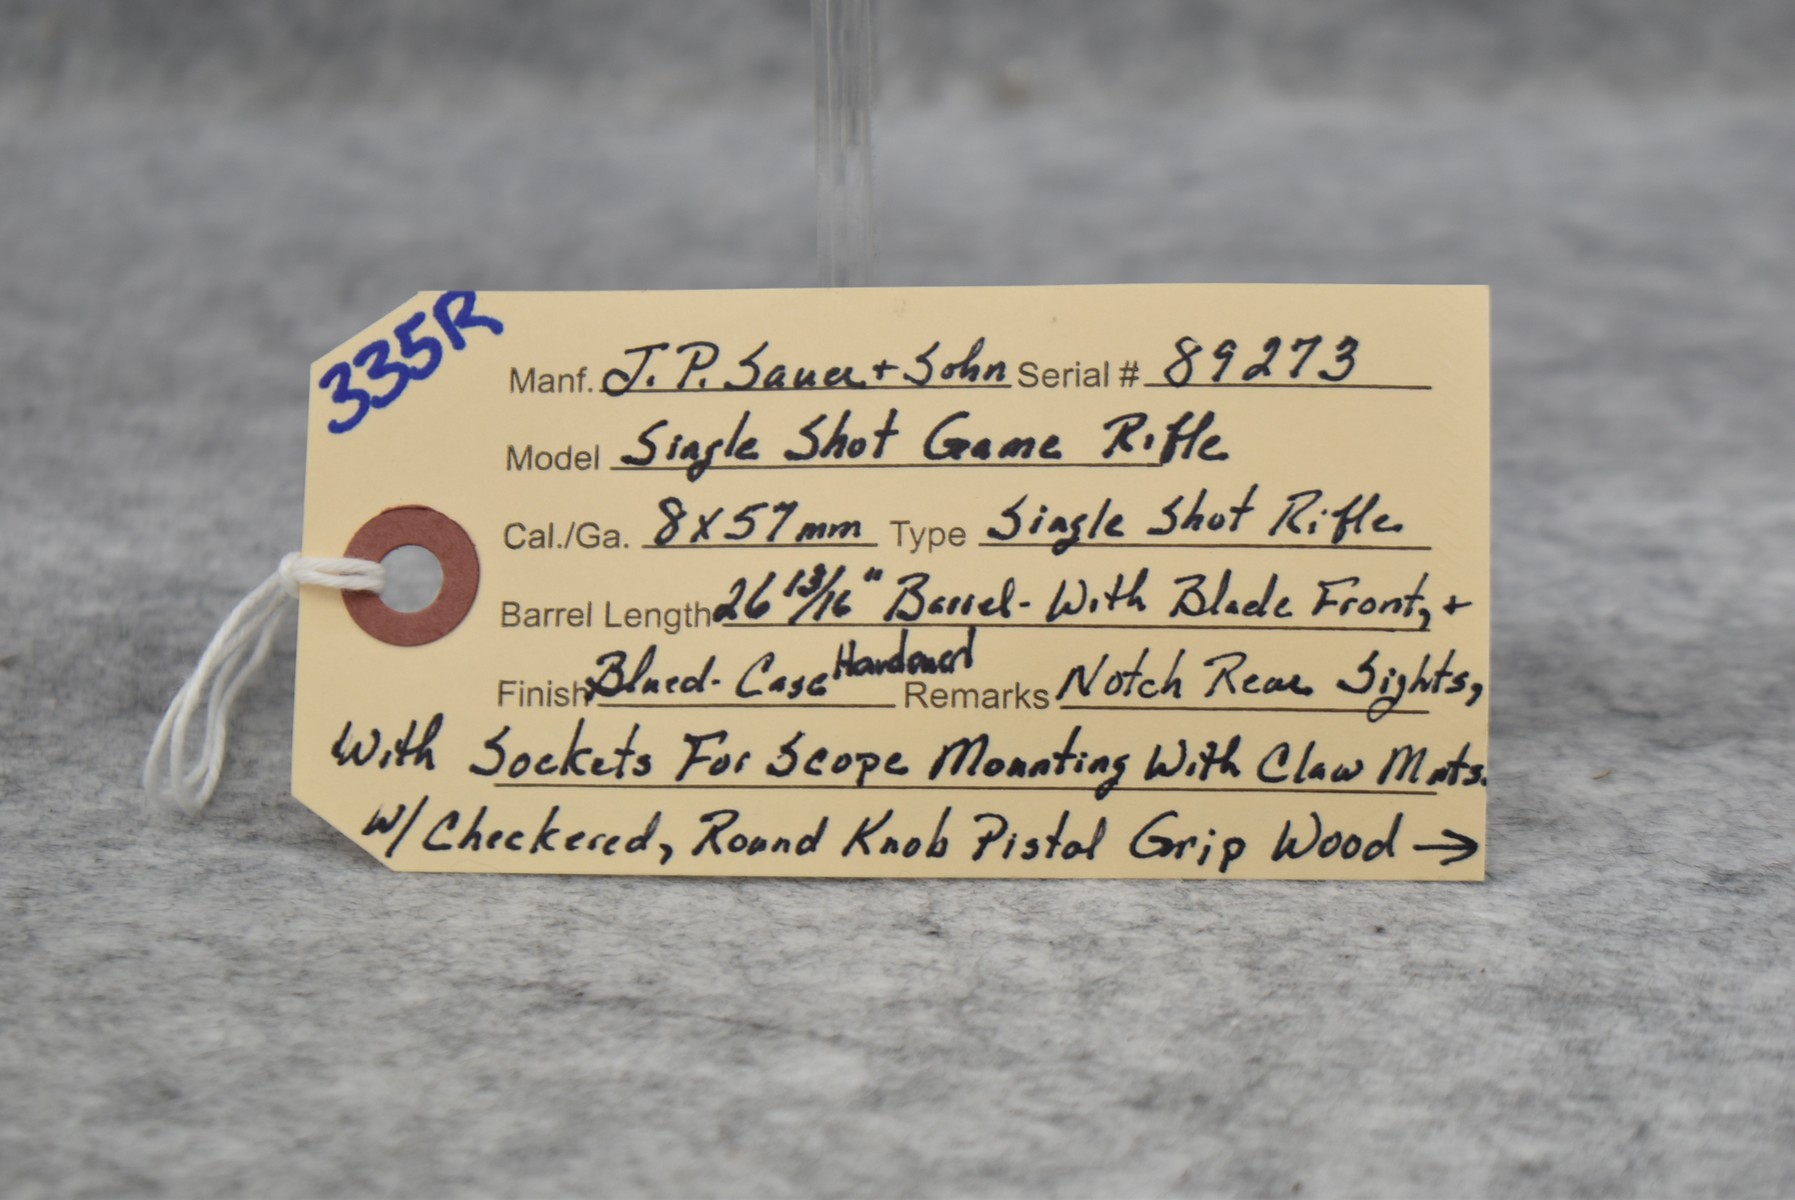 335R
Manf. J.P. Sauer + Sohn Serial # 89273
Model Single Shot Game Rifle
Cal./Ga. 8x57mm Type Single Shot Rifle
Barrel Length 26 13/16" Barrel - With Blade Front, +
Finish Blued - Case Hardened Remarks Notch Rear Sights,
With Sockets For Scope Mounting With Claw Mnts.
W/ Checkered, Round Knob Pistol Grip Wood →